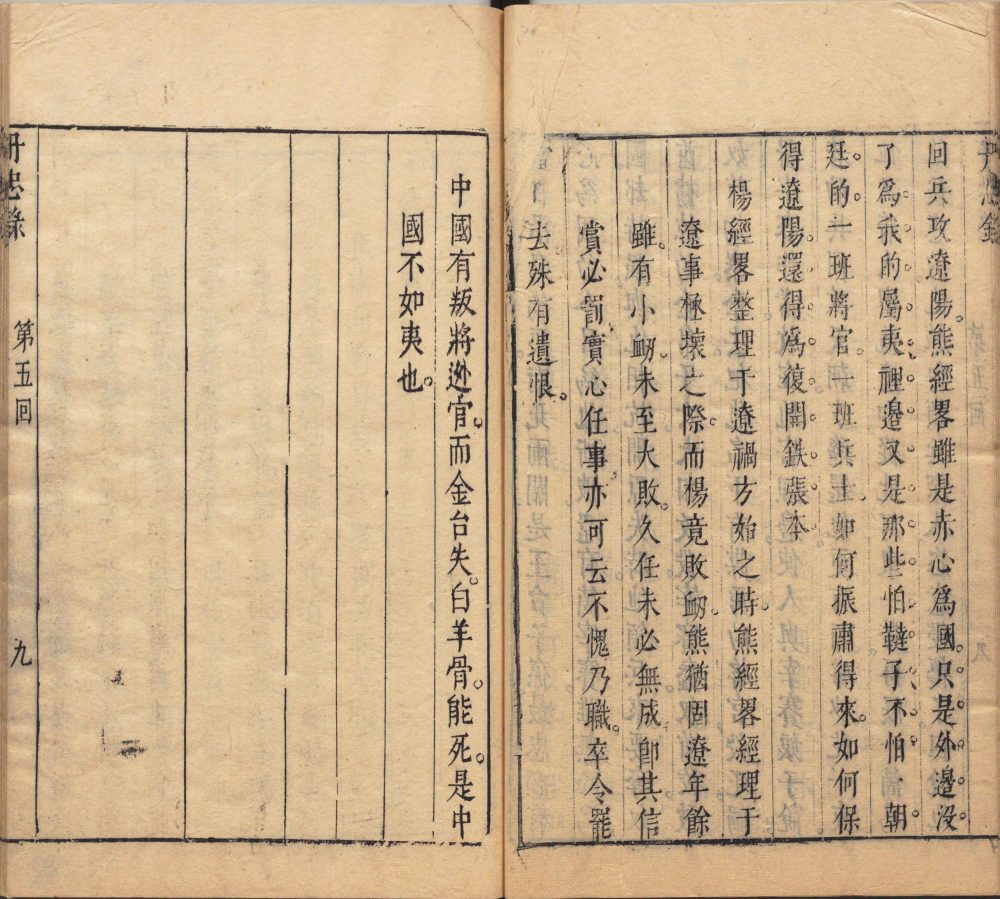 回兵攻遼陽。熊經畧雖是赤心爲國。只是外邉没
了爲我的屬夷。裡邉又是那些怕韃子不怕朝
廷的。一班將官。一班兵士。如何振肅得來。如何保
得遼陽。還得爲復開鉄張本。
楊經畧整理于遼禍方始之時。熊經畧經理于
遼事極壊之際。而楊竟敗衂。熊猶固遼年餘
雖。有小衂。未至大敗。久任未必無成。卽其信
賞必罰。實心任事。亦可云不愧乃職。卒令罷
去。殊有遺恨。
中國有叛將迯官。而金台失。白羊骨。能死。是中
國不如夷也。
丹忠錄
第五回
九